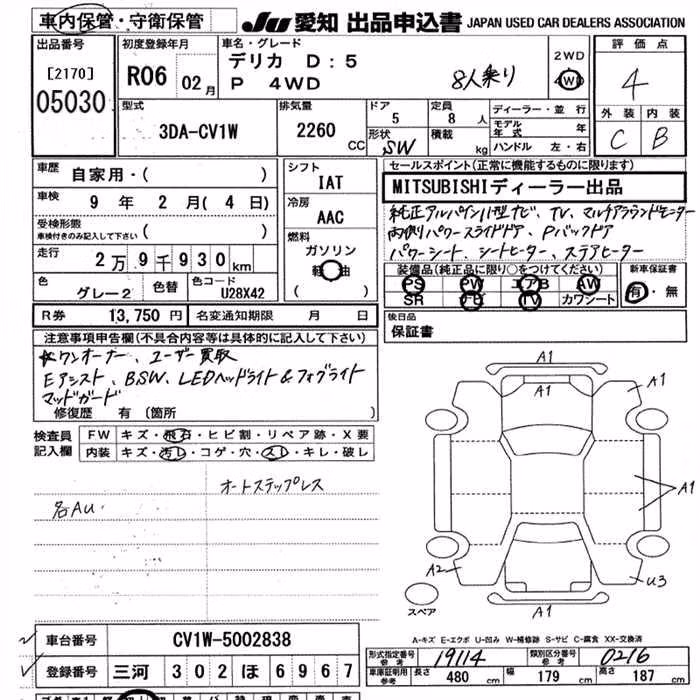 車内保管・守衛保管
JU 愛知 出品申込書 JAPAN USED CAR DEALERS ASSOCIATION
出品番号
[2170]
05030
初度登録年月
R06 02月
車名・グレード
デリカ D:5
P 4WD
8人乗り
2WD
4WD
評価点
4
外装 内装
C B
型式
3DA-CV1W
排気量
2260 CC
ドア
5
形状
SW
定員
8 人
積載
kg
ディーラー・並行
モデル年式 年
ハンドル 左・右
車歴
自家用・( )
車検
9 年 2 月 ( 4 日)
受検形態
車検付きのみ記入して下さい ( )
走行
2万9千930km
色
グレー2
色替
色コード
U28X42
シフト
IAT
冷房
AAC
燃料
ガソリン
軽油
( )
セールスポイント(正常に機能するものに限ります)
MITSUBISHIディーラー出品
純正アルパイン11型ナビ、TV、マルチアラウンドモニター
両側パワースライドドア、Pバックドア
パワーシート、シートヒーター、ステアヒーター
装備品(純正品に限り○をつけてください)
PS PW エアB AW
SR ナビ TV カワシート
新車保証書
有・無
R券 13,750 円
名変通知期限 月 日
後日品
保証書
注意事項申告欄(不具合内容等は具体的に記入して下さい)
ワンオーナー、ユーザー買取
Eアシスト、BSW、LEDヘッドライト&フォグライト
マッドガード
修復歴 有 (箇所
検査員記入欄
FW キズ・飛石・ヒビ割・リペア跡・X要
内装 キズ・汚レ・コゲ・穴・スレ・キレ・破レ
オートステップレス
各AU
A1
A1
A1
A1
A2
U3
A1
スペア
A-キズ E-エクボ U-凹み W-補修跡 S-サビ C-腐食 XX-交換済
車台番号 CV1W-5002838
登録番号 三河 302 ほ 6967
形式指定番号 参考 19114
類別区分番号 参考 0216
車庫証明用参考 長さ 480 cm 幅 179 cm 高さ 187 cm